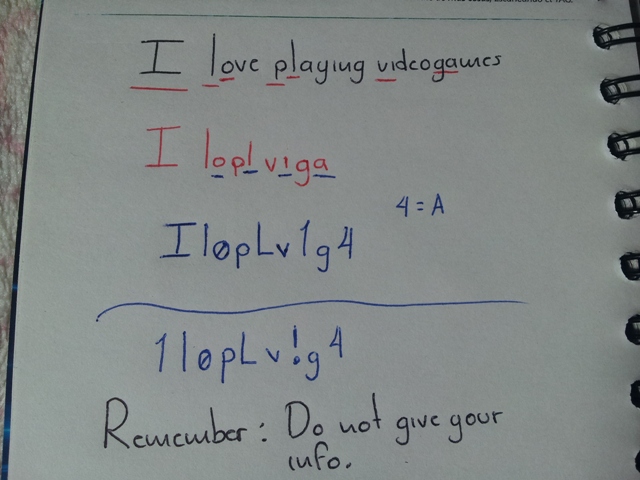 I love playing videogames
I loplviga
4=A
Il0pLv1g4
1l0pLv!g4
Remember: Do not give your
info.